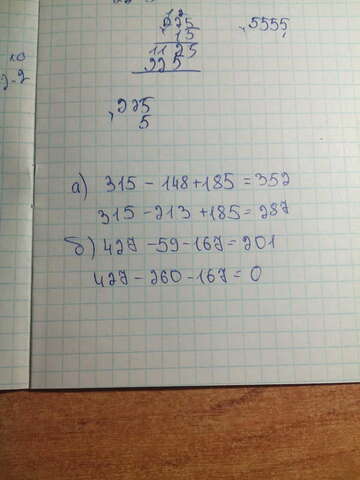 225
15
1125
225
,5555,
10
2-2
,225
5
а) 315 - 148 + 185 = 352
315 - 213 + 185 = 287
б) 427 - 59 - 167 = 201
427 - 260 - 167 = 0